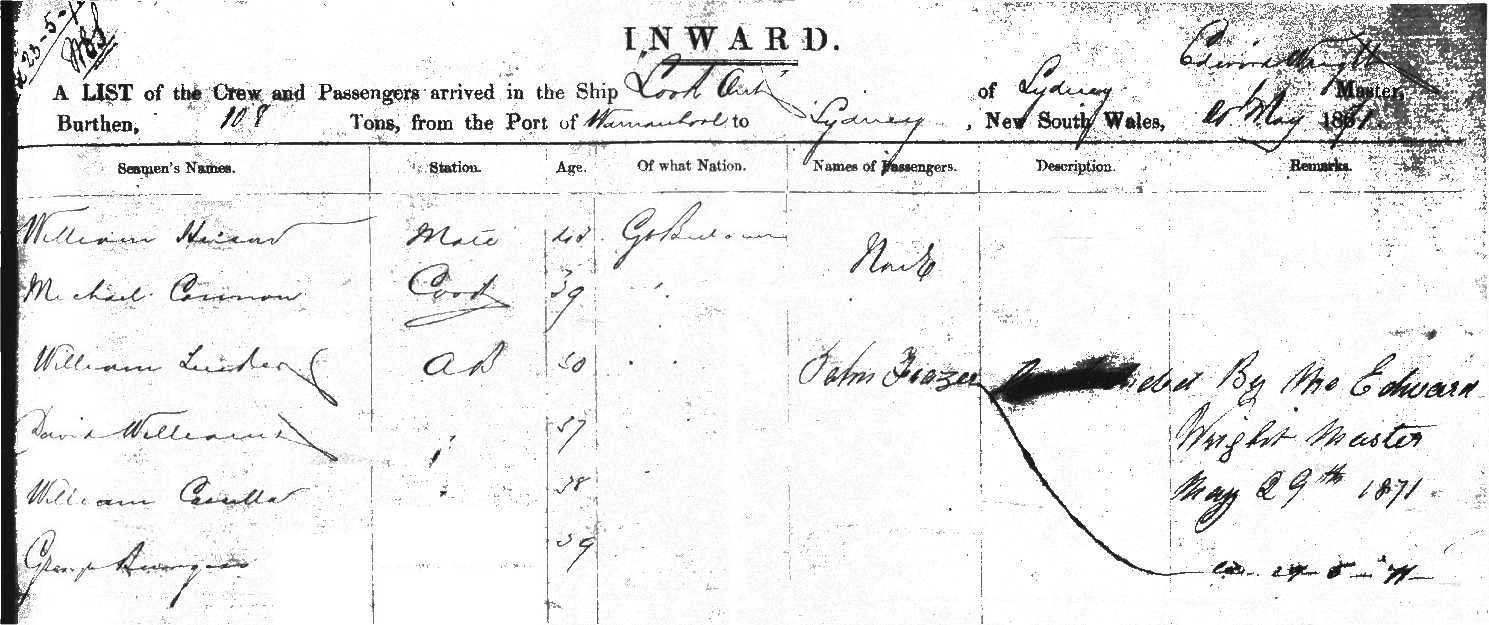 23-5-
INWARD.
A LIST of the Crew and Passengers arrived in the Ship Look Out of Sydney Edward Wright Master,
Burthen, 108 Tons, from the Port of Warrnambool to Sydney, New South Wales, May 1871
Seamen's Names. Station. Age. Of what Nation. Names of Passengers. Description. Remarks.
William Mate Gt Britain
None
Michael Cook 39
William AB 50
John Frazer By Me Edward
David Williams 37
Wright Master
William 38
May 29th 1871
George 39